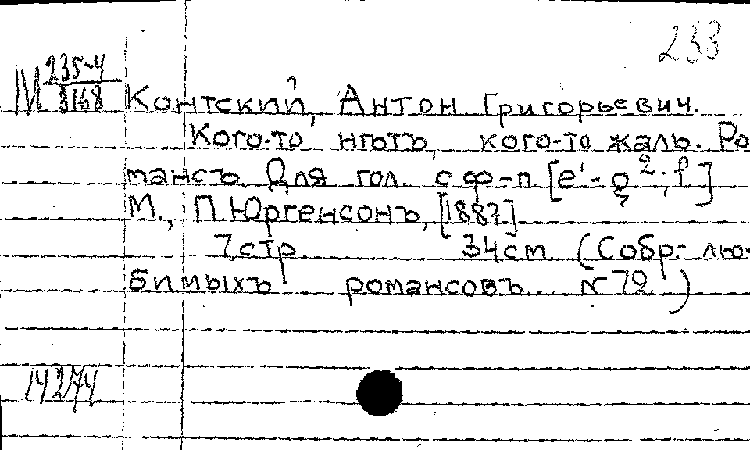 233
М 235-4
8168
Контский, Антон Григорьевич.
Кого-то нѣтъ, кого-то жаль. Ро
мансъ. Для гол. с ф-п [e'-g²; f]
М., П. Юргенсонъ, [1887]
7 стр. 34 cm (Собр. лю-
бимыхъ романсовъ. N 72)
14274